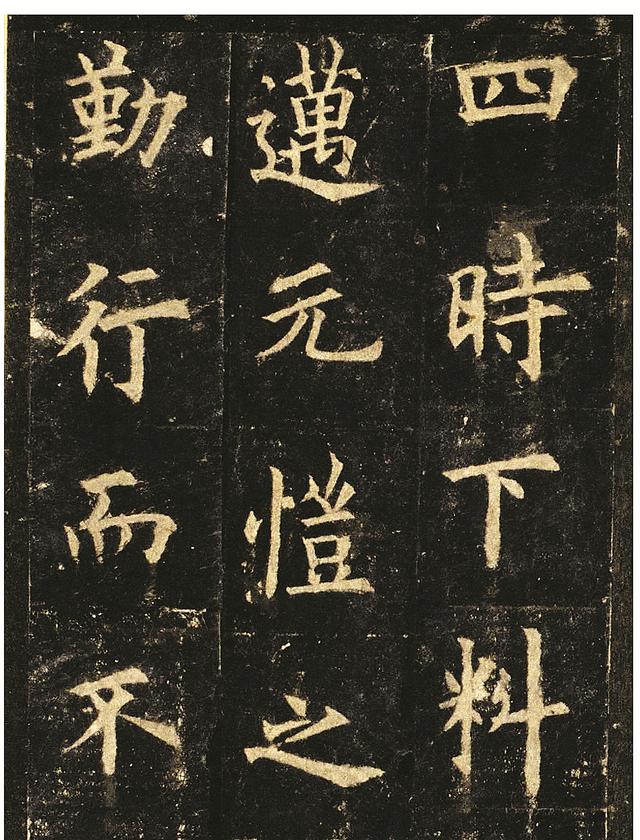 四時下料
邁元愷之
勤行而不